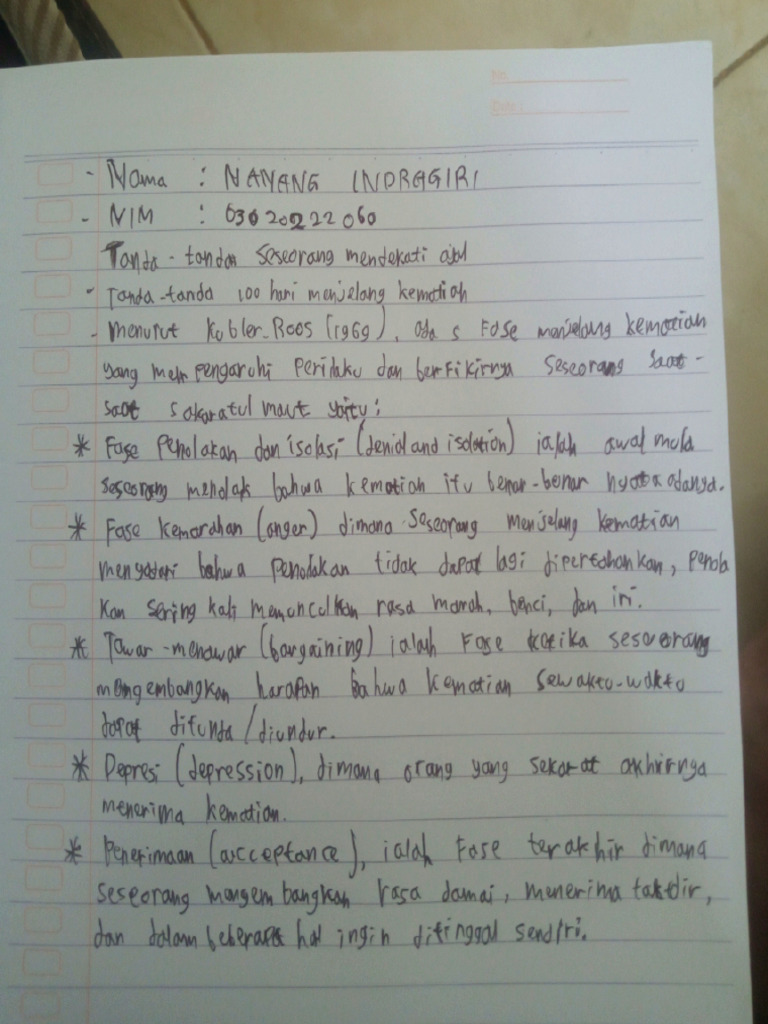 No.
Date :
- Nama : NAYANG INDRAGIRI
- NIM : 03020222060
Tanda-tanda seseorang mendekati ajal
- Tanda-tanda 100 hari menjelang kematian
- Menurut Kubler-Roos (1969), ada 5 Fase menjelang kematian
yang mempengaruhi perilaku dan berfikirnya seseorang saat-
saat sakaratul maut yaitu:
* Fase Penolakan dan isolasi (denial and isolation) ialah awal mula
seseorang menolak bahwa kematian itu benar-benar nyata adanya.
* Fase kemarahan (anger) dimana seseorang menjelang kematian
menyadari bahwa penolakan tidak dapat lagi dipertahankan, penola
kan sering kali memunculkan rasa marah, benci, dan iri.
* Tawar-menawar (bargaining) ialah Fase ketika seseorang
mengembangkan harapan bahwa kematian sewaktu-waktu
dapat ditunda/diundur.
* Depresi (depression), dimana orang yang sekarat akhirnya
menerima kematian.
* Penerimaan (acceptance), ialah Fase terakhir dimana
seseorang mengembangkan rasa damai, menerima takdir,
dan dalam beberapa hal ingin ditinggal sendiri.